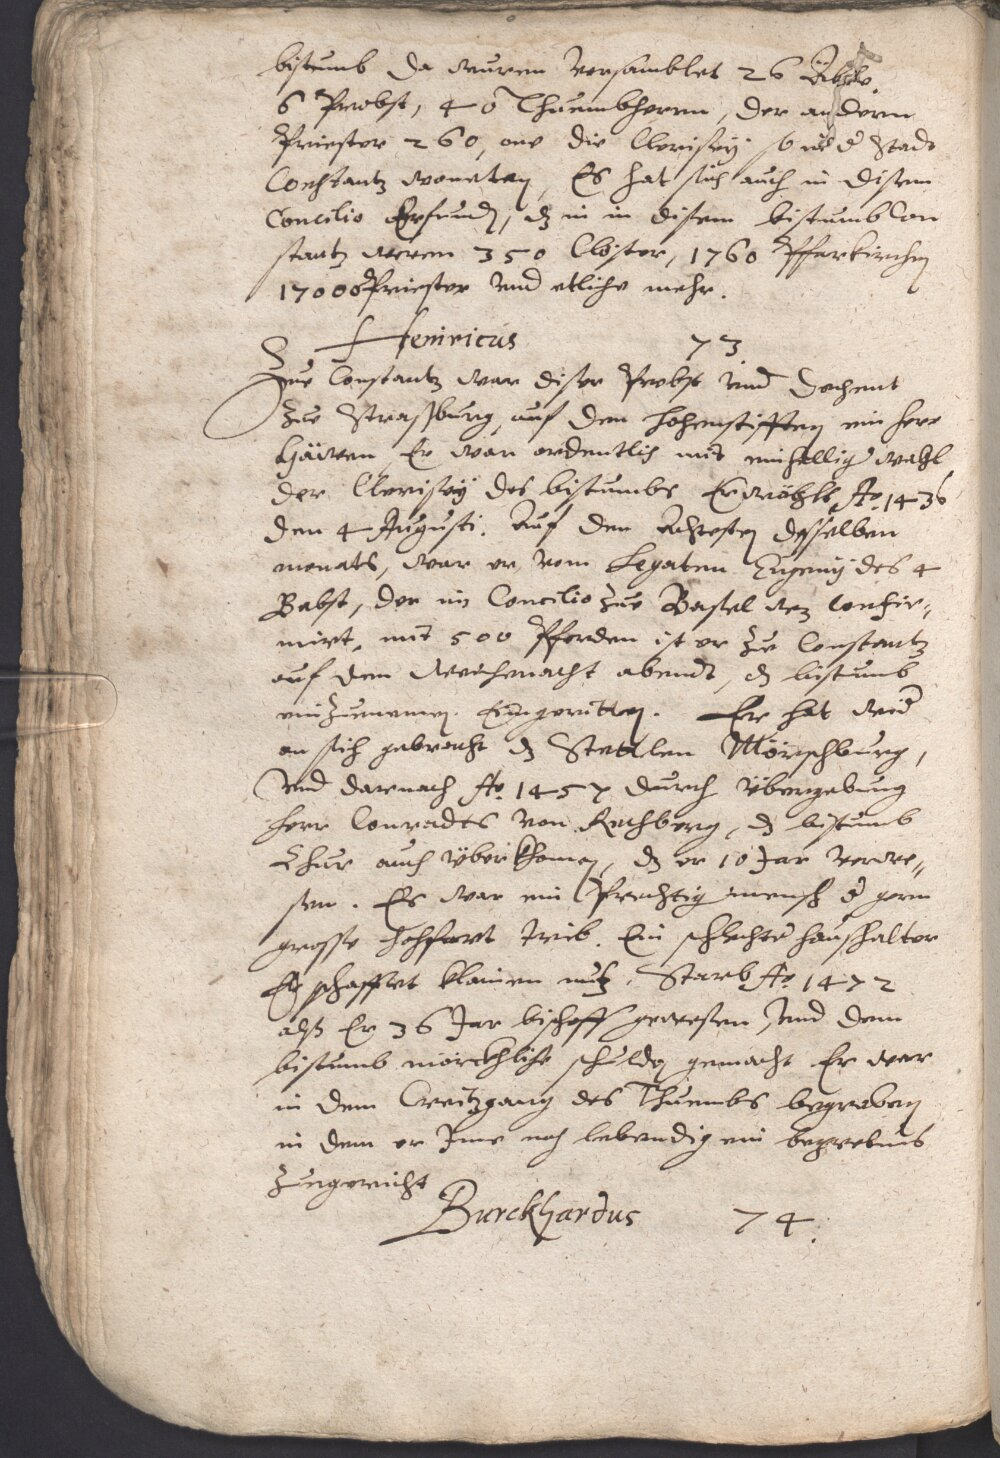 bistumb da wurem versamblet 26 Äbbte,
6 Probst, 40 Thuembherrn, der andern
Priester 260, one die Clerisey so in d Stadt
Constantz woneten, Es hat sich auch in disem
Concilio Erfunden, dz in disem bistumb Con
stantz weren 350 Clöster, 1760 Pfarkirchen
17000 Priester vnd etliche mehr.
Heinricus 73.
Zue Constantz war diser Probst vnd Dechent
zue Straßburg, auf den hohenstifften ein herr
Häwen, Er war ordentlich mit einhelliger wahl
der Clerisey des bistumbs Erwöhlt Ao. 1436
den 4 Augusti. Auf den Achtesten desselben
monats, war er vom Legaten Eugenij des 4
Babst, der im Concilio zue Basel wz confir-
mirt, mit 500 Pferden ist er zue Constantz
auf den Weihenacht abendt, dz bistumb
einzunemen Eingeritten. Er hat wid
an sich gebracht dz Stettlen Mörschburg,
vnd darnach Ao. 1457 durch übergebung
herr Conrades von Rechberg, dz bistumb
Chur auch überkhomen, dz er 10 Jar verwe-
sen. Es war ein Prechtig mensch d gern
grosse hohfart trib. Ein schlechter haushalter
Er schaffet klainen nutz. Starb Ao. 1472
alß Er 36 Jar bischoff gewesen, vnd dem
bistumb mörckhliche schulden gemacht Er war
in dem Creützgang des Thuembs begraben
in dem er Ime noch lebendig ein begrebnus
zugericht
Burckhardus 74.